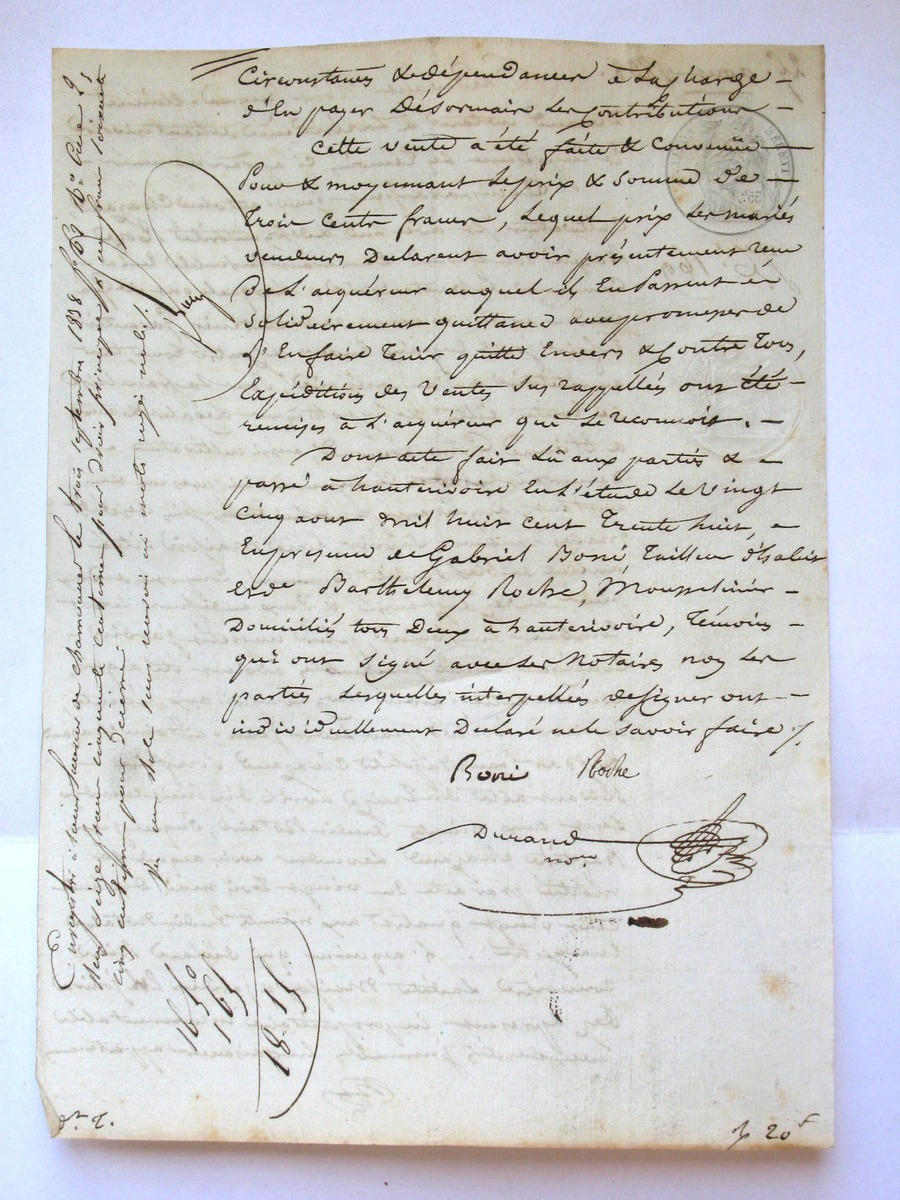 Circonstances & dépendances à la charge –
d'En payer Désormais les Contributions –
Cette vente a été faite & Convenüe –
Pour & moyennant le prix & somme de –
Trois Cents francs, lequel prix les mariés
vendeurs Déclarent avoir présentement reçu
De L'acquéreur auquel ils En Passent –
Solidairement quittance avec promesse de
L'En faire Tenir quitte Envers & Contre Tous,
Expéditions des Ventes sus rappellés ont été –
remises à L'acquéreur qui Le reconnoit. –
Dont acte fait Lû aux parties & –
passé à hauterivoire En L'étude Le Vingt
Cinq aout mil huit cent Trente huit, –
En presence de Gabriel Boni, Tailleur d'habits
et de Barthelemy Roche, Mousselinier –
Domiciliés tous Deux à hauterivoire, Témoins –
qui ont signé avec les Notaires non les
parties lesquelles interpellées de signer ont –
individuellement Déclaré ne le savoir faire /.
Boni Roche
Durand
nore
Enregistré à Saint Laurent de chamousset le trois septembre 1838 fo 69 Ro Case 2
Reçu seize francs cinquante centimes pour droits principaux
cinq centimes pour décime.
un mots rayé nuls /.
16 50
1 65
18 15
20 f